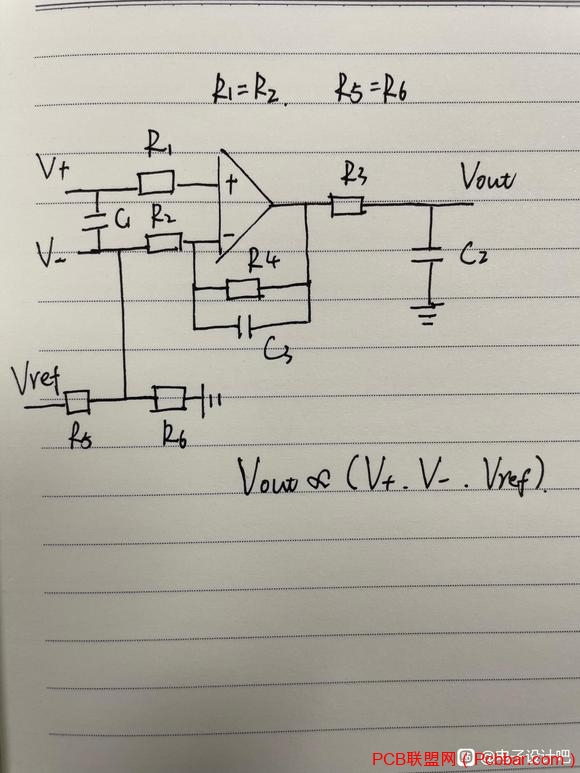 R1=R2. R5=R6
R1
V+
R3
Vout
+
C1
R2
V-
-
R4
C2
C3
Vref
R5
R6
Vout ∝ (V+. V-. Vref).
PCB联盟网（Pcbbar.com）
@电子设计吧